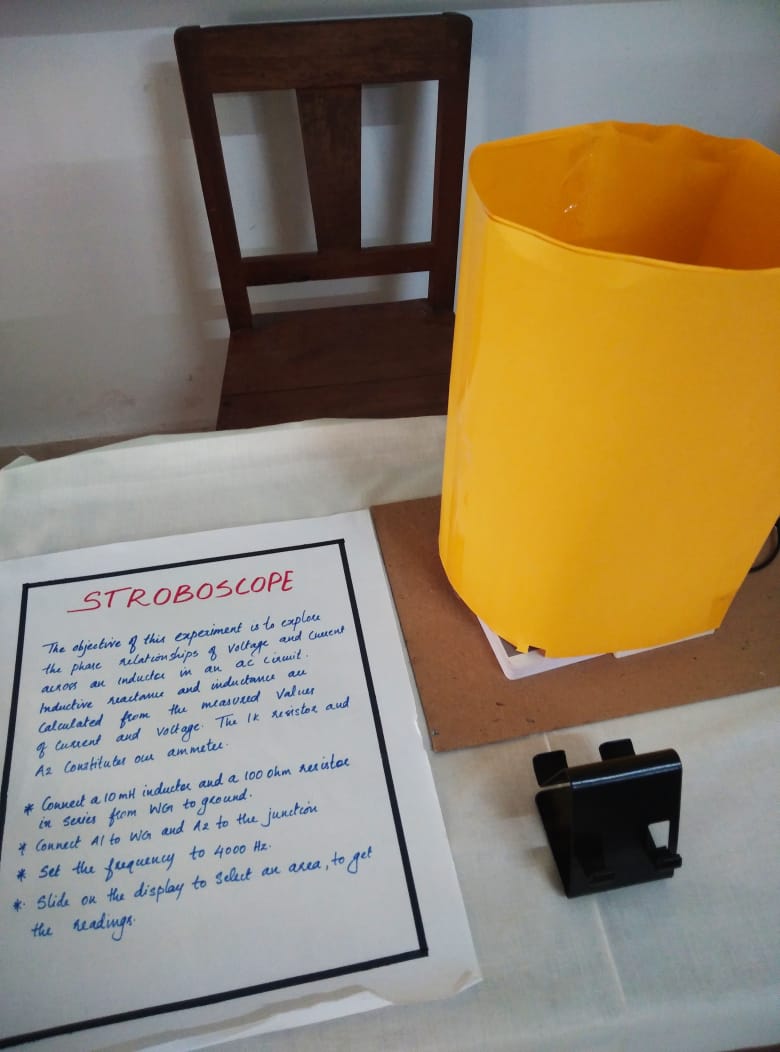 STROBOSCOPE
The objective of this experiment is to explore
the phase relationships of Voltage and Current
across an inductor in an ac circuit.
Inductive reactance and inductance are
Calculated from the measured values
of Current and Voltage. The 1K resistor and
A2 Constitutes our ammeter.
* Connect a 10 mH inductor and a 100 ohm resistor
in series from WG1 to ground.
* Connect A1 to WG1 and A2 to the junction
* Set the frequency to 4000 Hz.
* Slide on the display to Select an area, to get
the readings.